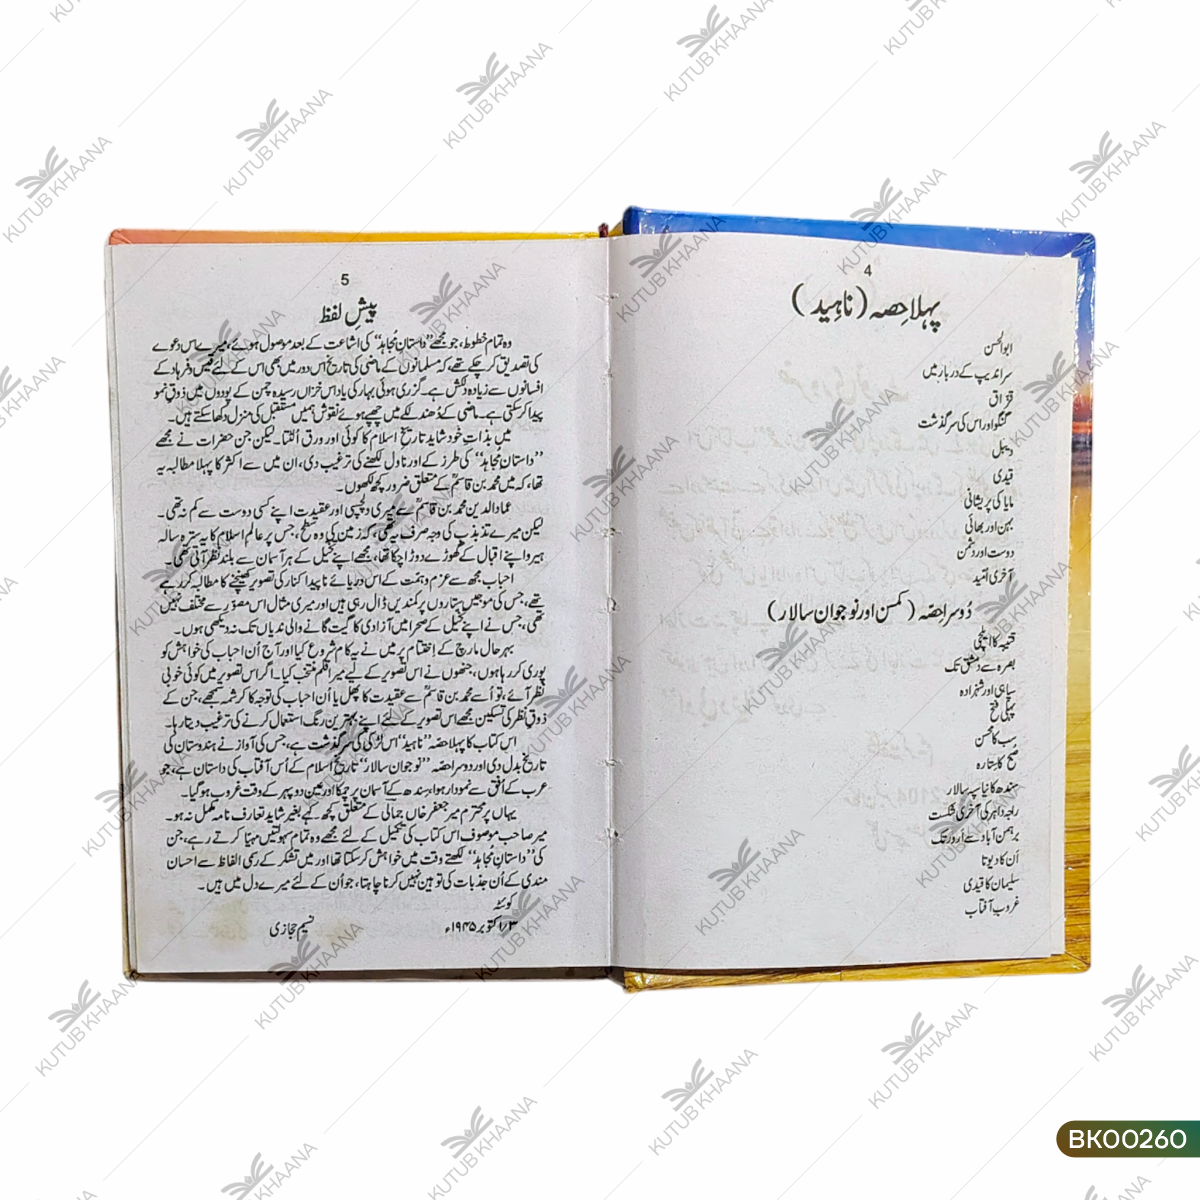 4
پہلا حِصہ (ناہید)
ابوالحسن
سراندیپ کے دربار میں
قزاق
گنگو اور اس کی سرگذشت
دیبل
قیدی
مایا کی پریشانی
بہن اور بھائی
دوست اور دشمن
آخری اُمید
دُوسرا حِصّہ (کمسن اور نوجوان سالار)
قتیبہ کا ایلچی
بصرہ سے دمشق تک
سپاہی اور شہزادہ
پہلی فتح
سب کا محسن
صُبح کا ستارہ
سِندھ کا نیا سپہ سالار
راجہ داہر کی آخری شکست
برہمن آباد سے اُرور تک
اُن کا دیوتا
سلیمان کا قیدی
غروبِ آفتاب
5
پیشِ لفظ
وہ تمام خطوط، جو مجھے ’’داستانِ مُجاہد‘‘ کی اشاعت کے بعد موصول ہوئے، میرے اس دعوے
کی تصدیق کر چکے تھے، کہ مسلمانوں کے ماضی کی تاریخ اس دور میں بھی اس کے لئے قیس و فرہاد کے
افسانوں سے زیادہ دلکش ہے۔ گزری ہوئی بہار کی یاد اس خزاں رسیدہ چمن کے پودوں میں ذوقِ نمو
پیدا کر سکتی ہے۔ ماضی کے دُھندلکے میں چھپے ہوئے نقوش ہمیں مستقبل کی منزل دکھا سکتے ہیں۔
میں بذاتِ خود شاید تاریخ اسلام کا کوئی اور ورق اُلٹتا۔ لیکن جن حضرات نے مجھے
’’داستانِ مُجاہد‘‘ کی طرز کے اور ناول لکھنے کی ترغیب دی، ان میں سے اکثر کا پہلا مطالبہ یہ
تھا، کہ میں محمد بن قاسمؒ کے متعلق ضرور کچھ لکھوں۔
عماد الدین محمد بن قاسمؒ سے میری دلچسپی اور عقیدت اپنے کسی دوست سے کم نہ تھی۔
لیکن میرے تذبذب کی وجہ صرف یہ تھی، کہ زمین کی وہ سطح، جس پر عالمِ اسلام کا یہ سترہ سالہ
ہیرو اپنے اقبال کے گھوڑے دوڑا چکا تھا، مجھے اپنے تخیل کے ہر آسمان سے بلند نظر آتی تھی۔
احباب مجھ سے عزم و ہمت کے اس دریائے ناپیدا کنار کی تصویر کھینچنے کا مطالبہ کر رہے
تھے، جس کی موجیں ستاروں پر کمندیں ڈال رہی ہیں اور میری مثال اس مصوّر سے مختلف نہیں
تھی، جس نے اپنے تخیل کے صحرا میں آزادی کا گیت گانے والی ندیاں تک نہ دیکھی ہوں۔
بہرحال مارچ کے اختتام پر میں نے یہ کام شروع کیا اور آج اُن احباب کی خواہش کو
پوری کر رہا ہوں، جنھوں نے اس تصویر کے لیے میرا قلم منتخب کیا۔ اگر اس تصویر میں کوئی خوبی
نظر آئے، تو اُسے محمد بن قاسمؒ سے عقیدت کا پھل یا اُن احباب کی توجہ کا کرشمہ سمجھے، جن کے
ذوقِ نظر کی تسکین مجھے اس تصویر کے لئے اپنے بہترین رنگ استعمال کرنے کی ترغیب دیتا رہا۔
اس کتاب کا پہلا حصّہ ’’ناہید‘‘ اس لڑکی کی سرگذشت ہے، جس کی آواز نے ہندوستان کی
تاریخ بدل دی اور دوسرا حصّہ ’’نوجوان سالار‘‘ تاریخِ اسلام کے اُس آفتاب کی داستان ہے، جو
عرب کے اُفق سے نمودار ہوا، سندھ کے آسمان پر چمکا اور عین دوپہر کے وقت غروب ہو گیا۔
یہاں پر محترم میر جعفر خاں جمالی کے متعلق کچھ کہے بغیر شاید تعارف نامہ مکمل نہ ہو۔
میر صاحب موصوف اس کتاب کی تکمیل کے لئے مجھے وہ تمام سہولتیں مہیّا کرتے رہے، جن
کی ’’داستانِ مُجاہد‘‘ لکھتے وقت میں خواہش کر سکتا تھا اور میں تشکر کے رسمی الفاظ سے احسان
مندی کے اُن جذبات کی توہین نہیں کرنا چاہتا، جو اُن کے لئے میرے دل میں ہیں۔
کوئٹہ
۳؍اکتوبر ۱۹۴۵ء
نسیم حجازی
KUTUB KHAANA
BK00260